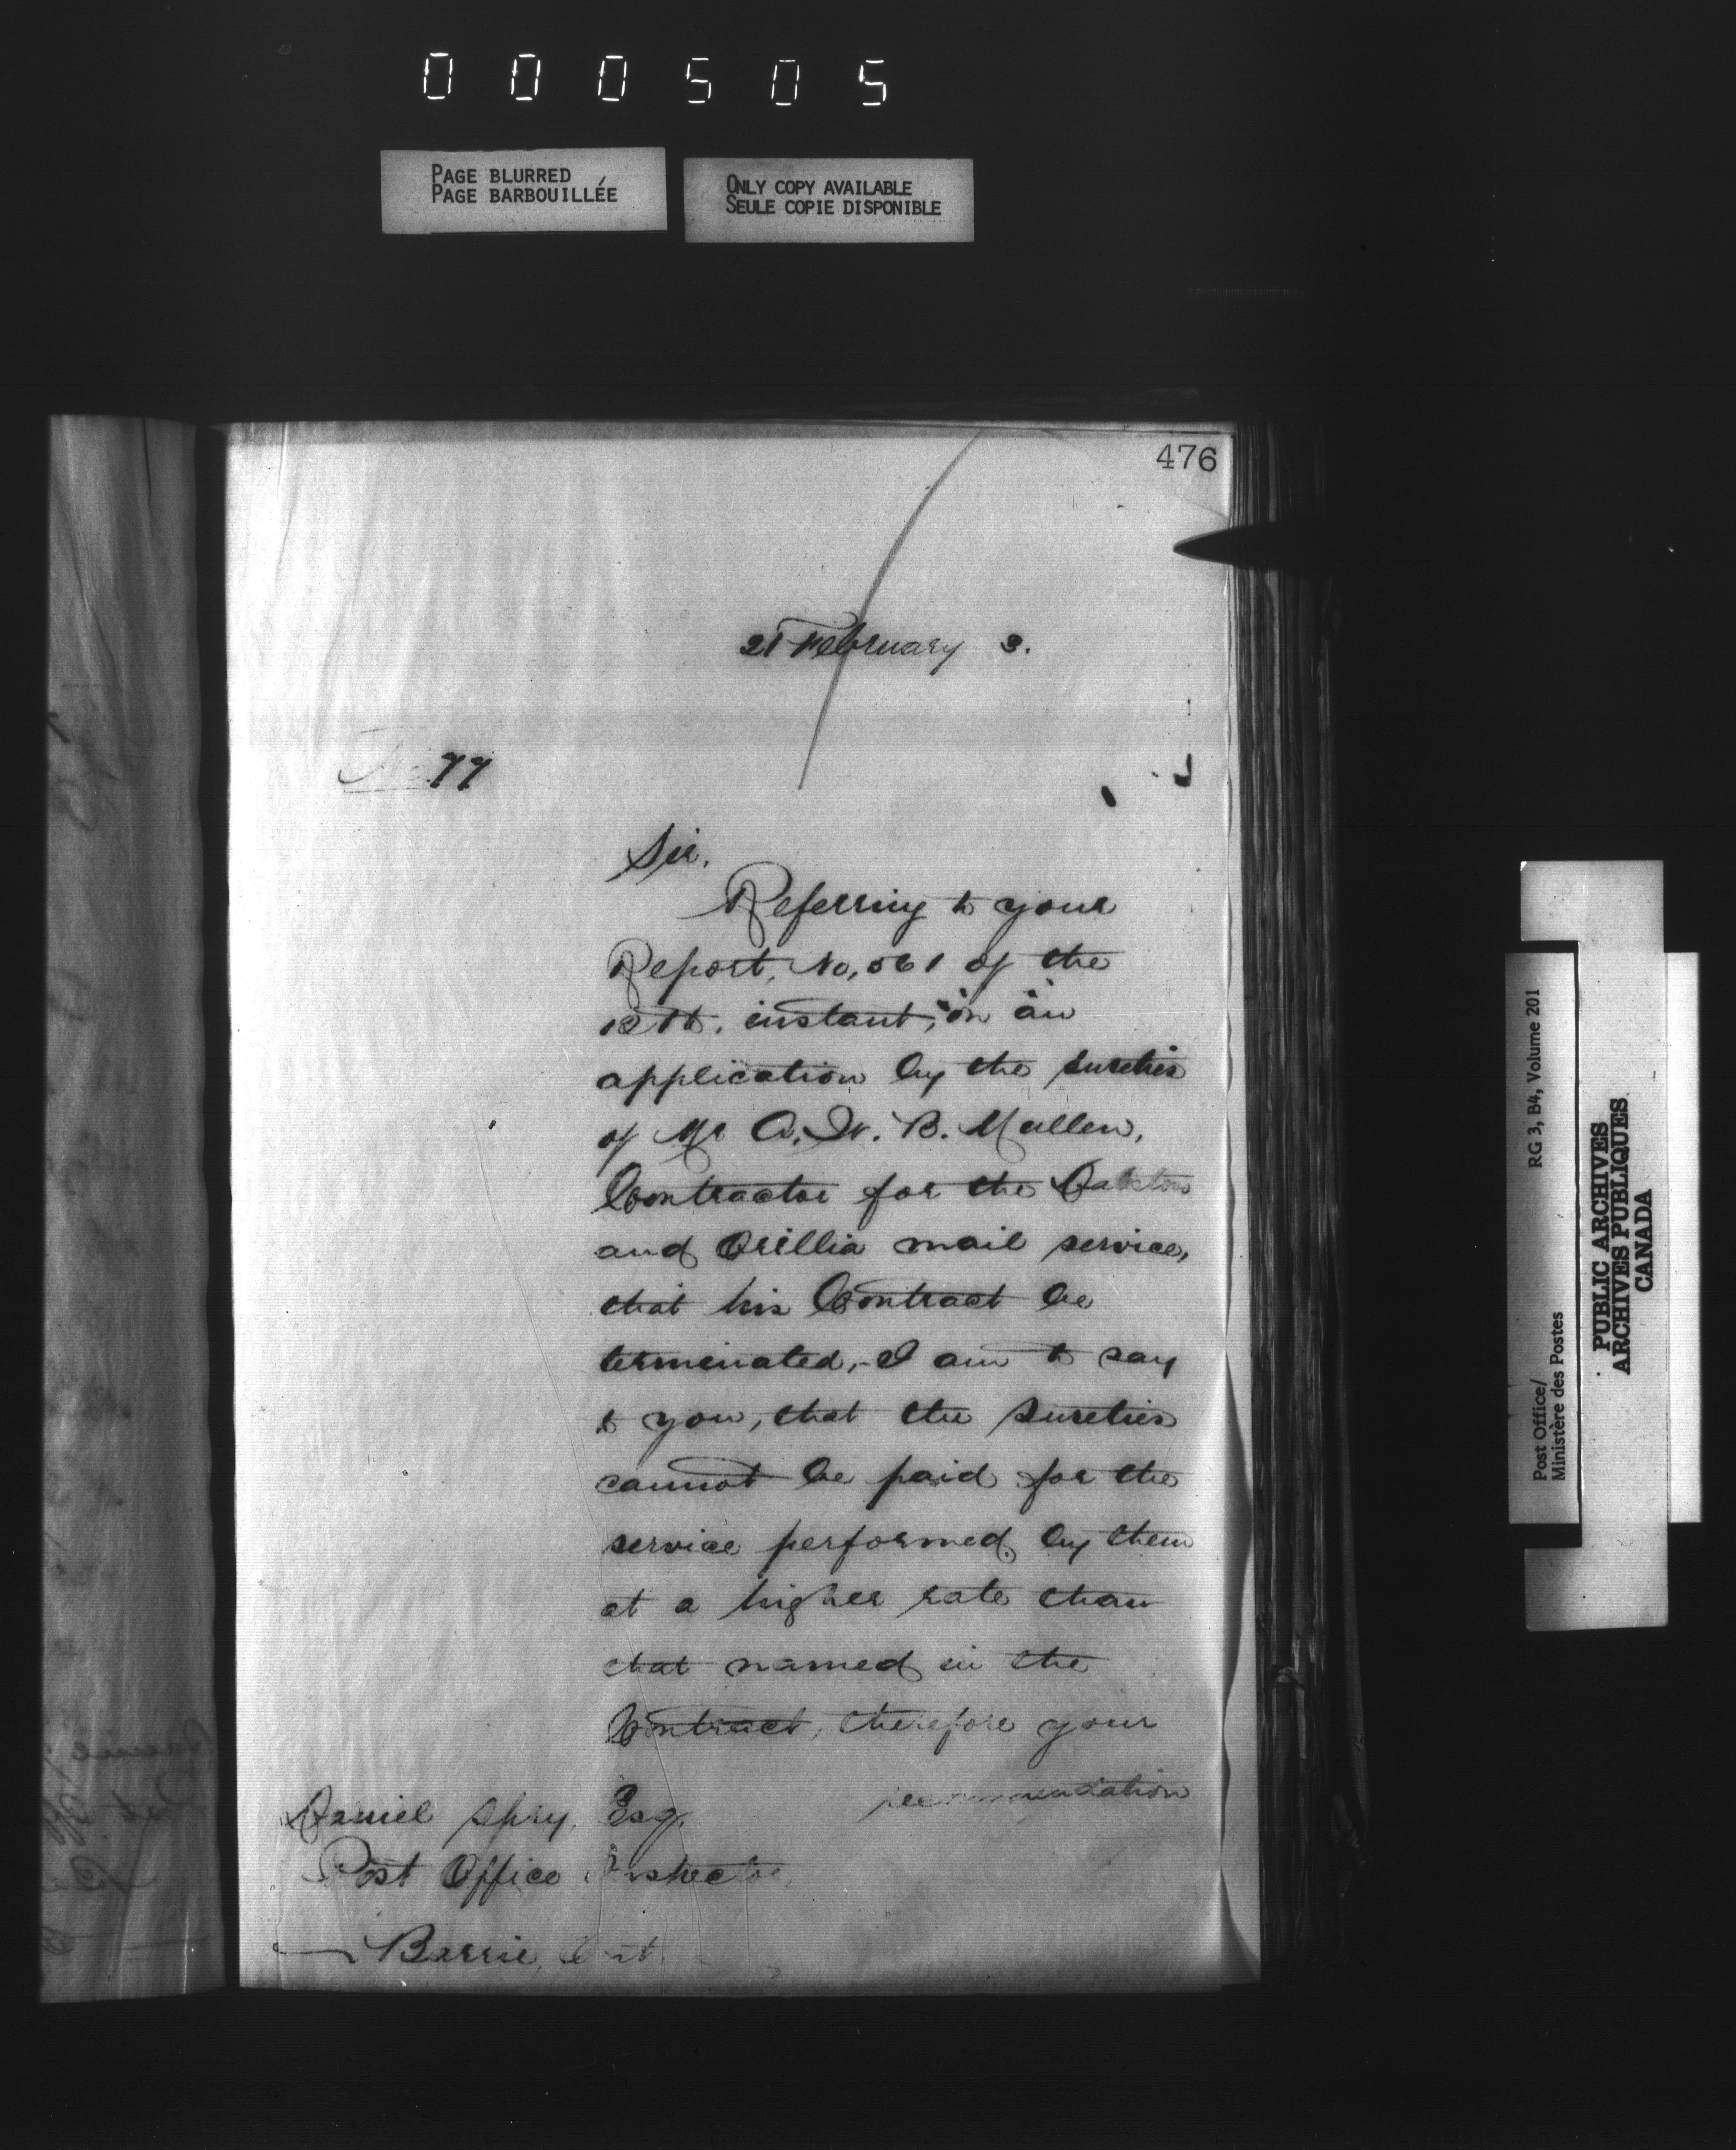 000505
PAGE BLURRED
PAGE BARBOUILLÉE
ONLY COPY AVAILABLE
SEULE COPIE DISPONIBLE
476
21 February 3.
No. 77
Sir,
Referring to your
Report, No, 561 of the
12th. instant, on an
application by the sureties
of Mr A. W. B. Mullen,
Contractor for the
and Orillia mail service,
that his Contract be
terminated, - I am to say
to you, that the Sureties
cannot be paid for the
service performed by them
at a higher rate than
that named in the
Contract, therefore your
recommendation
Daniel Spry, Esq.
Post Office Inspector,
Barrie, Ont.
RG 3, B4, Volume 201
Post Office/
Ministère des Postes
PUBLIC ARCHIVES
ARCHIVES PUBLIQUES
CANADA